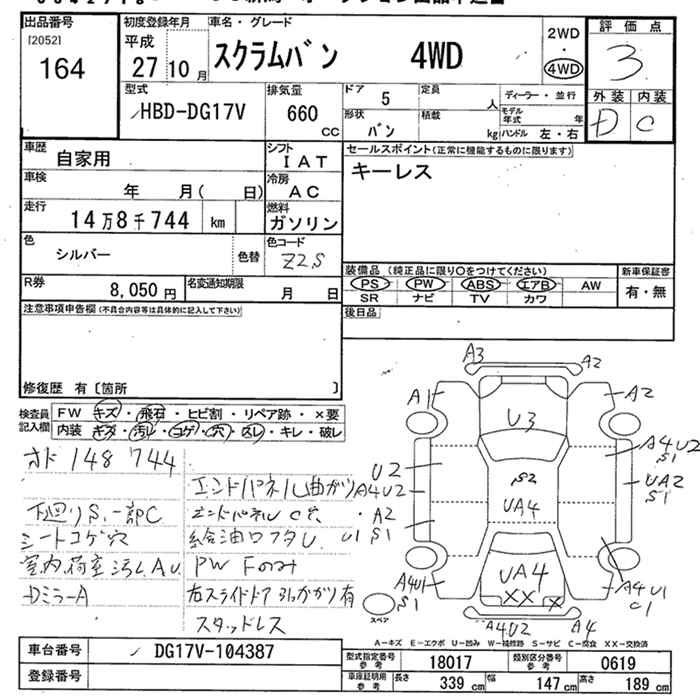 出品番号
[2052]
164
初度登録年月
平成
27 10 月
車名・グレード
スクラムバン 4WD
2WD
・
4WD
評価点
3
外装 内装
D C
型式
HBD-DG17V
排気量
660
CC
ドア 5
定員 人
形状 バン
積載 kg
ディーラー・並行
モデル年式 年
ハンドル 左・右
車歴
自家用
シフト
IAT
車検
年 月( 日)
冷房
AC
走行
14万8千744 km
燃料
ガソリン
色
シルバー
色替
色コード
Z2S
セールスポイント(正常に機能するものに限ります)
キーレス
R券
8,050円
名変通知期限
月 日
装備品(純正品に限り○をつけてください)
PS PW ABS エアB AW
SR ナビ TV カワ
新車保証書
有・無
注意事項申告欄(不具合内容等は具体的に記入して下さい)
後日品
修復歴 有〔箇所 〕
検査員記入欄
FW キズ・飛石・ヒビ割・リペア跡・×要
内装 キズ・汚れ・コゲ・穴・スレ・キレ・破レ
オド148'744
エンドパネル曲がり
下廻りS、一部C
エンドパネルC穴
シートコゲ穴
給油口フタU
室内、荷室汚れAU
PW Fのみ
DミラーA
右スライドドア引っかかり有
スタッドレス
A3
A2
A1
A2
U3
A4U2
S1
U2
A4U2
S2
UA2
S1
UA4
A2
U1 S1
A4U1
S1
UA4
XX X
A4U1
C1
スペア
A4U2
A4
A-キズ E-エクボ U-凹み W-補修跡 S-サビ C-腐食 XX-交換済
車台番号
DG17V-104387
登録番号
型式指定番号
参考
18017
類別区分番号
参考
0619
車庫証明用
参考
長さ 339 cm
幅 147 cm
高さ 189 cm